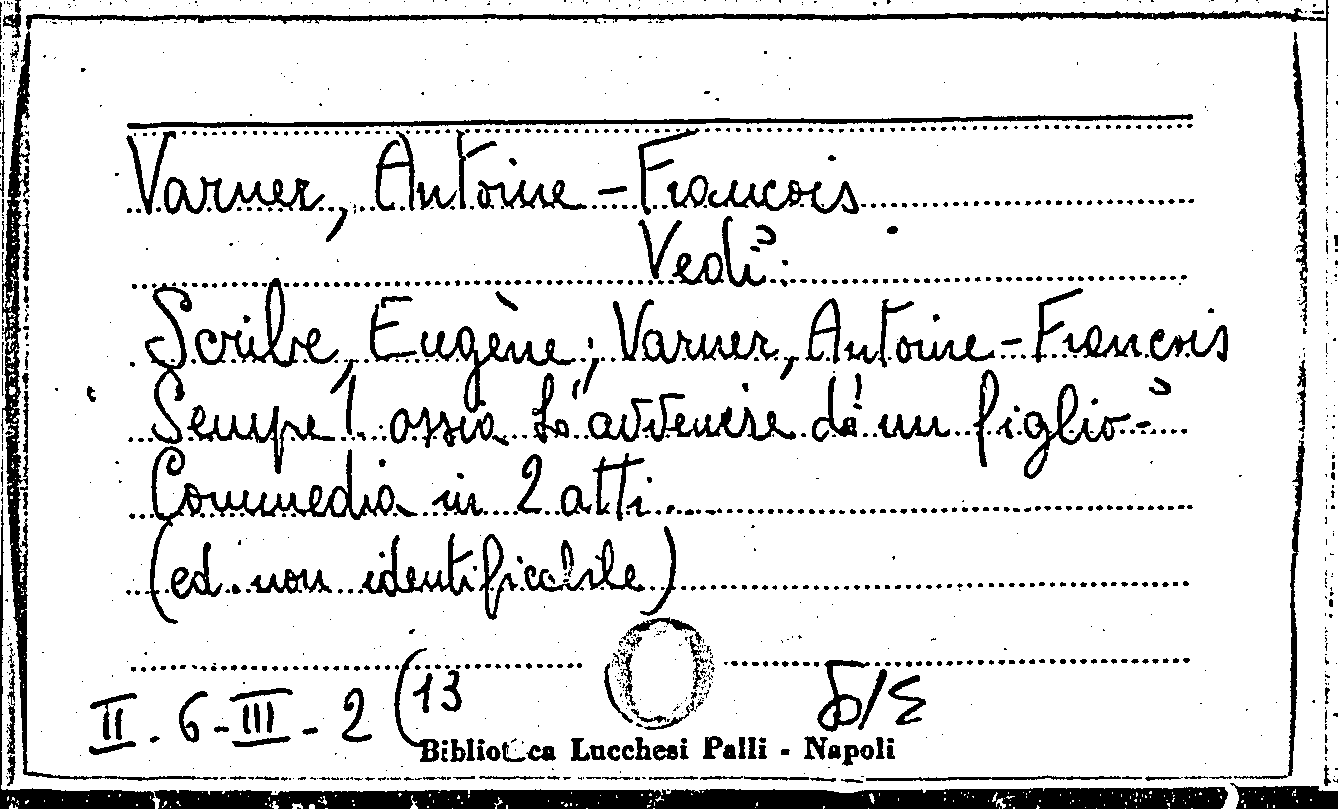 Varner, Antoine-Francois
Vedi:
Scribe, Eugène; Varner, Antoine-Francois
Sempre! ossia L'avvenire di un figlio-
Commedia in 2 atti.
(ed. non identificabile)
II. 6-III-2 (13
Biblioteca Lucchesi Palli - Napoli